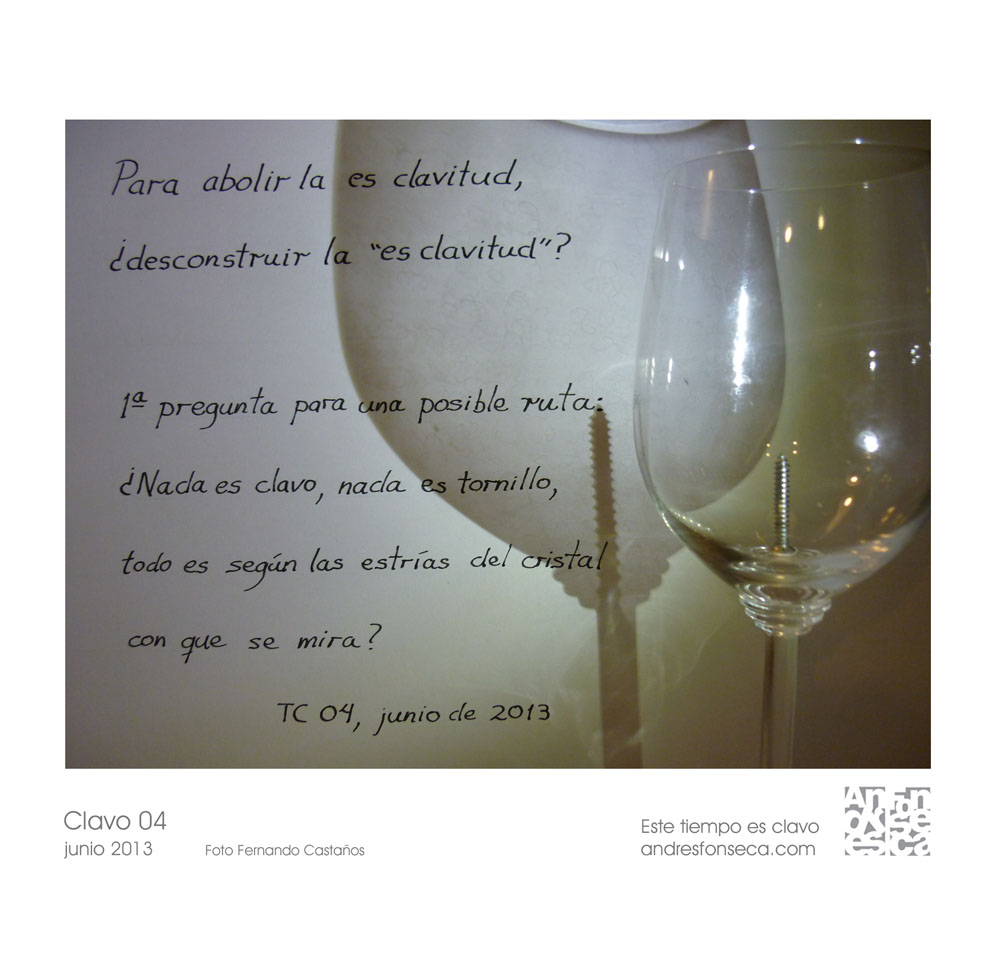 Para abolir la es clavitud,
¿desconstruir la “es clavitud”?
1ª pregunta para una posible ruta:
¿Nada es clavo, nada es tornillo,
todo es según las estrías del cristal
con que se mira?
TC 04, junio de 2013
Clavo 04
junio 2013
Foto Fernando Castaños
Este tiempo es clavo
andresfonseca.com